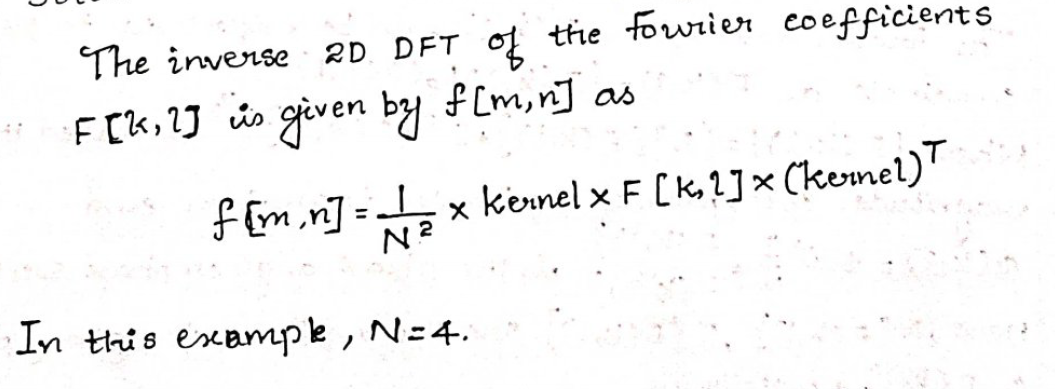 The inverse 2D DFT of the Fourier coefficients
F[k,l] is given by f[m,n] as
f[m,n] = 1/N² × kernel × F[k,l] × (kernel)ᵀ
In this example, N=4.